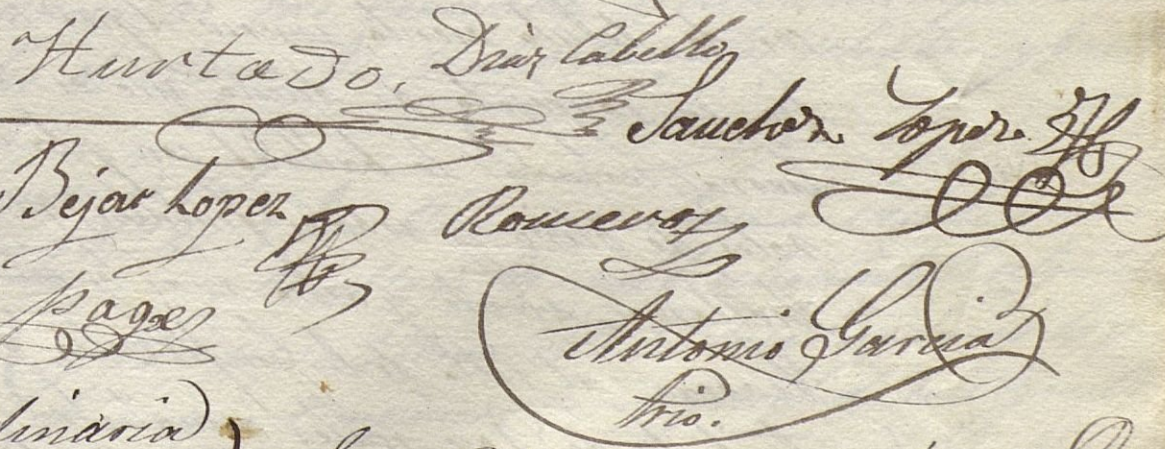 Hurtado. Diaz Cabello
Sanchez Lopez
Bejar Lopez Romero
Pages
Antonio Garcia
Srio.
linaria